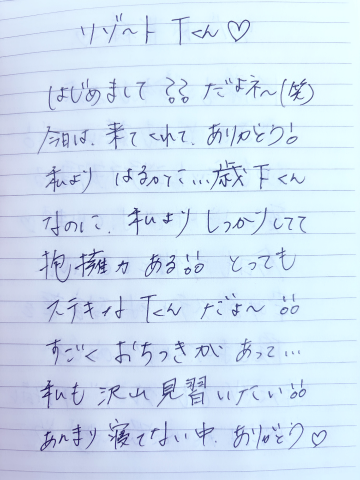 リゾート Tくん♡
はじめまして?? だよネ〜(笑)
今日は、来てくれて、ありがとう!
私より はるかに…歳下くん
なのに、私より しっかりしてて
抱擁力 ある!! とっても
ステキな Tくん だよ〜!!
すごく おちつきが あって…
私も 沢山 見習いたい!!
あんまり 寝てない中、ありがとう♡